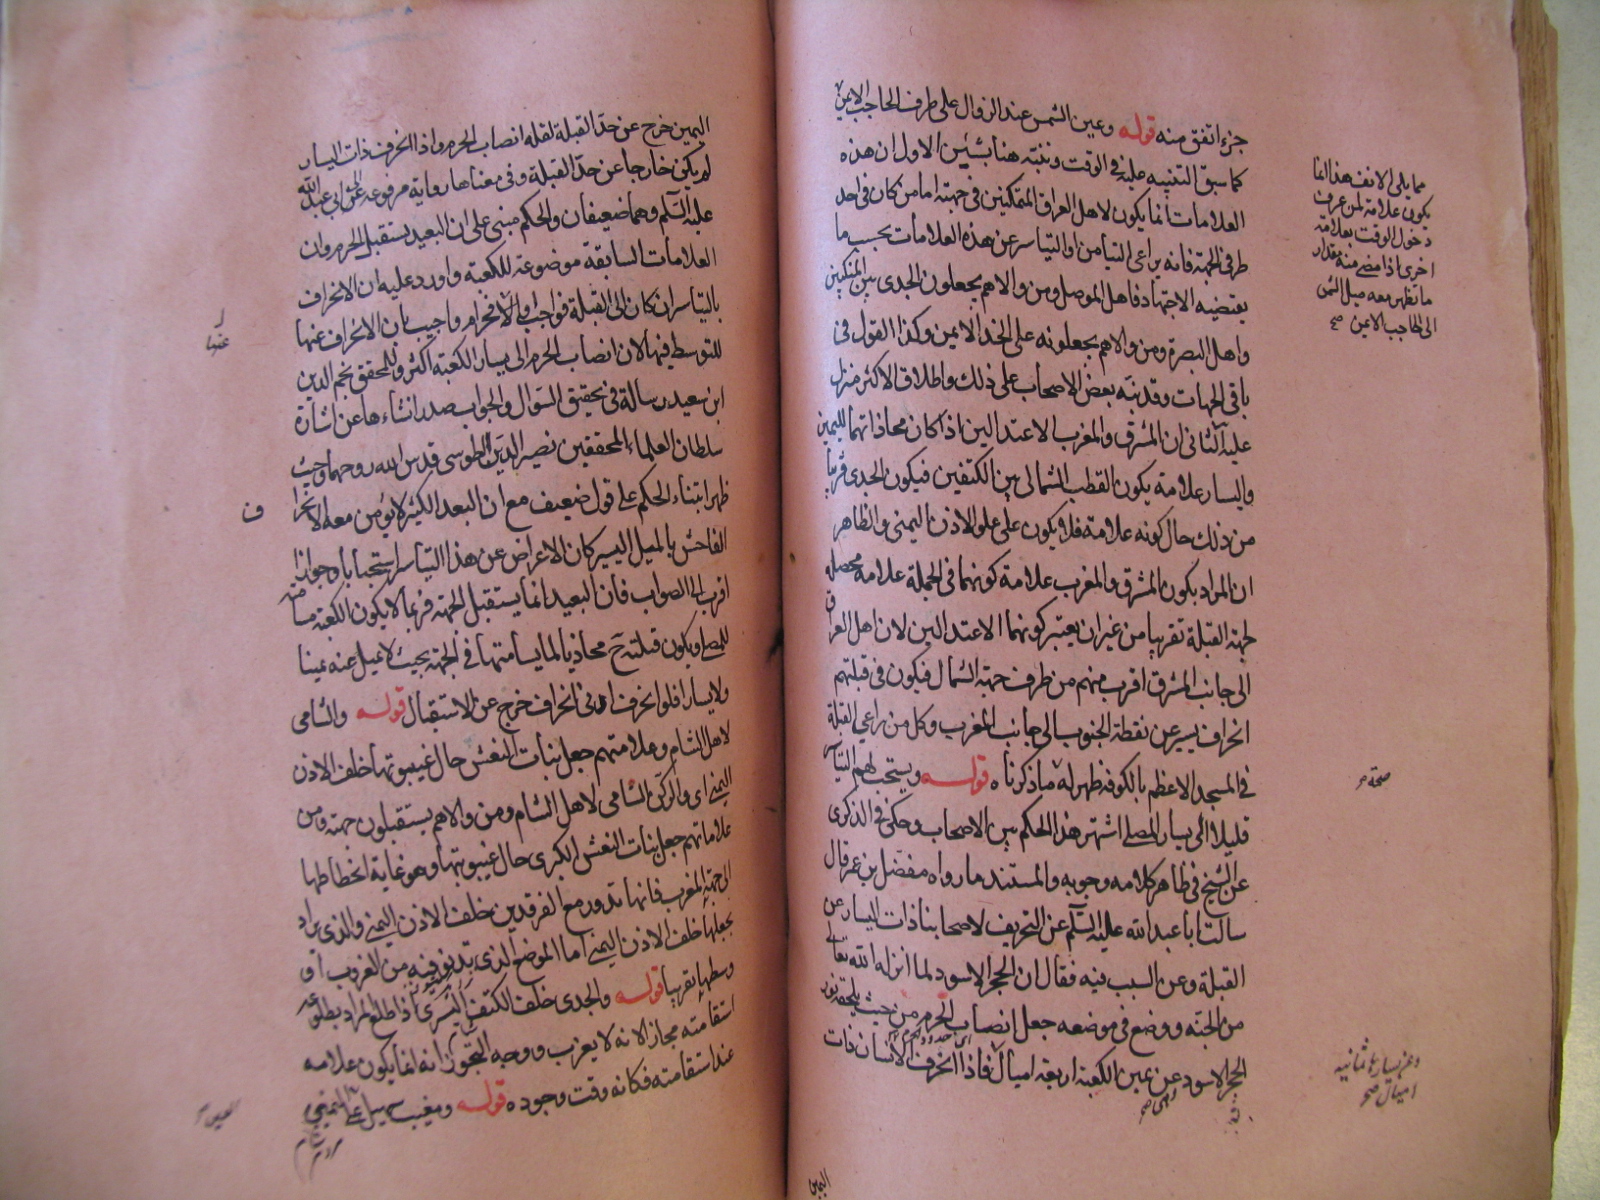 جزء اتفق منه قوله وعين الشمس عند الزوال على طرف الحاجب الايمن
كما سبق التنبيه عليه في الوقت وننبّه هنا بشيئين الاول ان هذه
العلامات انما يكون لاهل العراق المتمكنين في جهته اما من كان في احد
طرفي الجهة فانه يراعي التيامن او التياسر عن هذه العلامات بحسب ما
يقتضيه الاجتهاد فاهل الموصل ومن والاهم يجعلون الجدى بين المنكبين
واهل البصرة ومن والاهم يجعلونه على الخد الايمن وكذا القول في
باقي الجهات وقد نبّه بعض الاصحاب على ذلك واطلاق الاكثر منزل
عليه الثاني ان المشرق والمغرب الاعتداليين اذا كان محاذاتهما لليمين
واليسار علامة يكون القطب الشمالي بين الكتفين فيكون الجدى قريبا
من ذلك حال كونه علامة فلا يكون على علو الاذن اليمنى والظاهر
ان المراد بكون المشرق والمغرب علامة كونهما في الجملة علامة محصلة
لجهة القبلة تقريبا من غير ان يعتبر كونهما الاعتداليين لان اهل العراق
الى جانب المشرق اقرب منهم من طرف جهة الشمال فيكون في قبلتهم
انحراف يسير عن نقطة الجنوب الى جانب المغرب وكل من راعي القبلة
في المسجد الاعظم بالكوفة ظهر له ما ذكرناه قوله ويستحب لهم التياسر
قليلا الى يسار المصلي اشتهر هذا الحكم بين الاصحاب وحكى في الذكرى
عن الشيخ في ظاهر كلامه وجوبه والمستند ما رواه مفضل بن عمر قال
سالت ابا عبد الله عليه السلم عن التحريف لاصحابنا ذات اليسار عن
القبلة وعن السبب فيه فقال ان الحجر الاسود لما انزله الله تعالى
من الجنه ووضع في موضعه جعل انصاب الحرم من حيث يلحقه نور
الحجر الاسود عن يمين الكعبة اربعة اميال فاذا انحرف الانسان ذات
اى حدود الحرم
مما يلى الانف هذا انما
يكون علامة لمن عرف
دخول الوقت بعلامة
اخرى اذا مضى منه مقدار
ما تظهر معه ميل الشمس
الى الحاجب الايمن صح
وعن يسارها ثمانية
اميال صح
اليمين
اليمين خرج عن حدّ القبلة لقلة انصاب الحرم واذا انحرف ذات اليسار
لم يكن خارجا عن حدّ القبلة وفي معناها رواية مرفوعة الى ابي عبد الله
عليه السلم وهما ضعيفان والحكم مبني على ان البعيد يستقبل الحرم وان
العلامات السابقة موضوعة للكعبة واورد عليه ان الانحراف
بالتياسر ان كان الى القبلة فواجب والا فحرام واجيب بان الانحراف عنها
للتوسط فيها لان انصاب الحرم الى يسار الكعبة اكثر وللمحقق نجم الدين
ابن سعيد رسالة في تحقيق السؤال والجواب صدر انشاءها عن اشارة
سلطان العلماء المحققين نصير الدين الطوسى قدس الله روحهما وحيث
ظهر ابتناء الحكم على قول ضعيف مع ان البعد الكثير لا يؤمن معه الانحرا
ف
الفاحش بالميل اليسير كان الاعراض عن هذا التياسر استحبابا وجوازا
اقرب الى الصواب فان البعيد انما يستقبل الجهة فربما لا يكون الكعبة مسامتة
للمصلي ويكون قبلته ح محاذيا لما يسامتها في الجهة بحيث لا يميل عنه يمينا
ولا يسارا فلو انحرف ادنى انحراف خرج عن الاستقبال قوله والشامى
لاهل الشام وعلامتهم جعل بنات النعش حال غيبوبتها خلف الاذن
اليمنى اى والركن الشامى لاهل الشام ومن والاهم يستقبلون جهته ومن
علاماتهم جعل بنات النعش الكبرى حال غيبوبتها وهو غاية انحطاطها
الى جهة المغرب فانها تدور مع الفرقدين خلف الاذن اليمنى والذى يراد
بجعلها خلف الاذن اليمنى اما الموضع الذى تدنو فيه من الغروب او
وسطها تقريبا قوله والجدى خلف الكتف اليسرى اذا طلع المراد بطلوعه
استقامته مجازا لانه لا يغرب ووجه التجوز انه انما يكون علامة
عند استقامته فكانه وقت وجوده قوله ومغيب سهيل على اليمنى